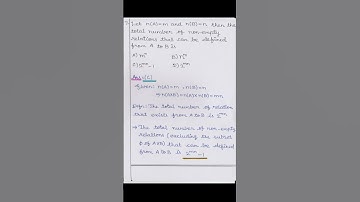 Let n(A)=m and n(B)=n. then the
total number of non-empty
relations that can be defined
from A to B is
A) mⁿ B) nᵐ
C) 2ᵐⁿ-1 D) 2ᵐⁿ
Ans:-
Given: n(A)=m, n(B)=n
⇒ n(A×B)=n(A)×n(B)=mn
The total number of relation
that exists from A to B is 2ᵐⁿ
→ The total number of non-empty
relations (excluding the subset
ϕ of A×B) that can be defined
from A to B is 2ᵐⁿ-1